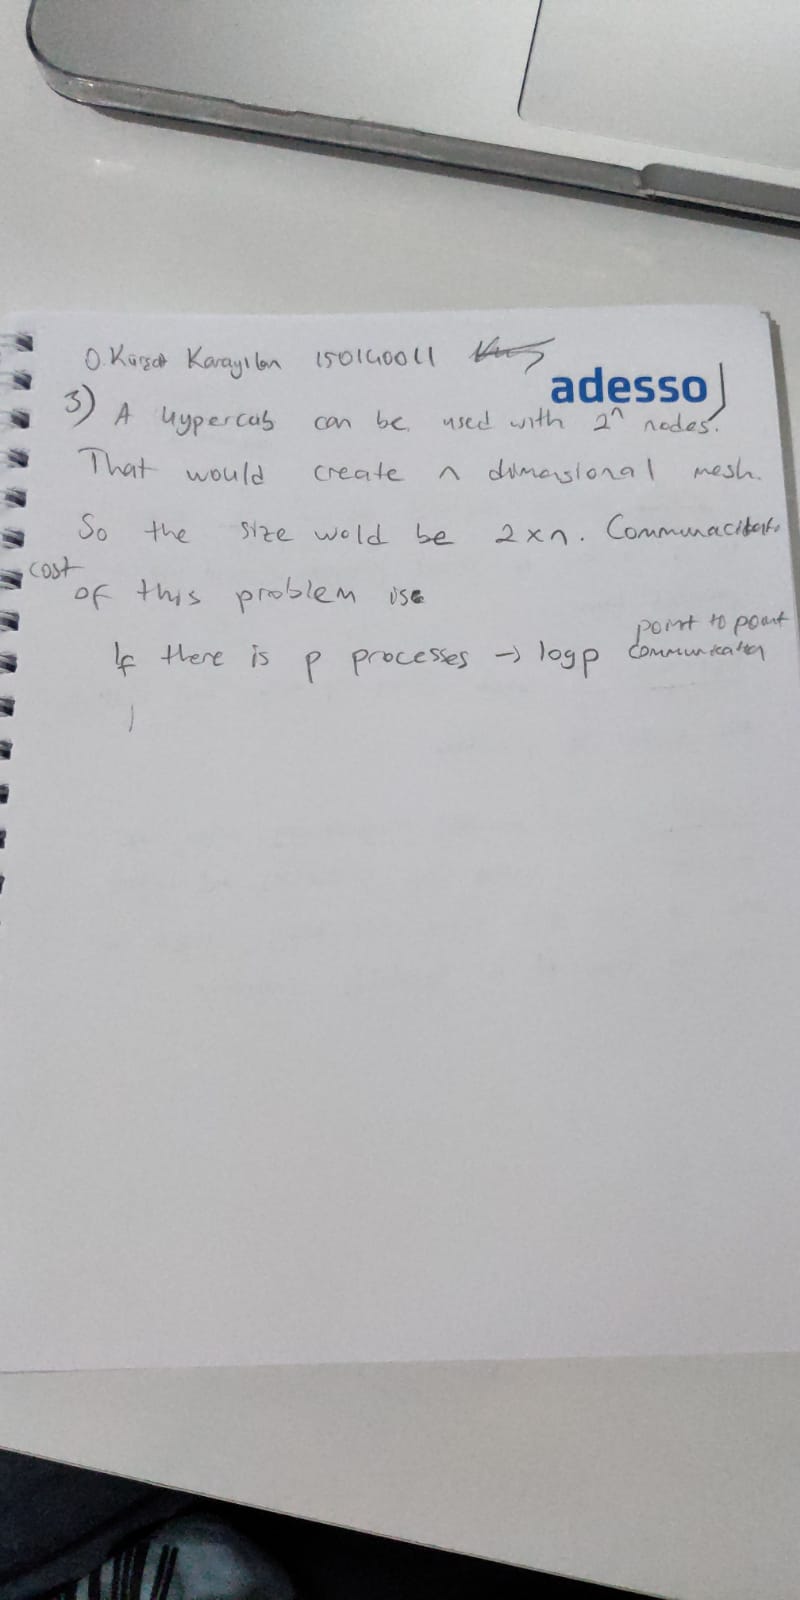 O. Kürşat Karayılan 150140011
adesso
3) A Hypercub can be used with 2^n nodes.
That would create n dimensional mesh.
So the size wold be 2xn.
cost
of this problem is
point to point
If there is p processes → logp communication